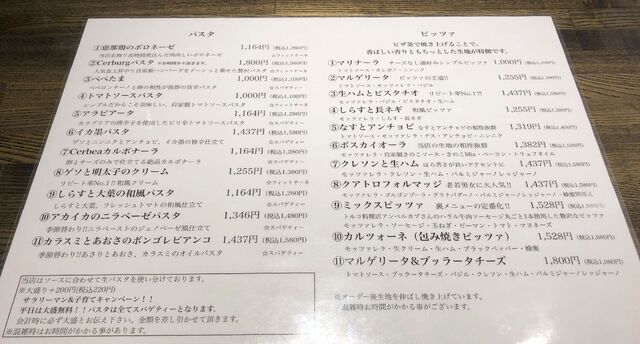 パスタ
①恵那鶏のボロネーゼ 1,164円(税込1,280円)
②Cerburgパスタ 1,800円(税込1,980円)
③ぺぺたま 1,000円(税込1,100円)
☆スパゲティー
④トマトソースパスタ 1,000円(税込1,100円)
シンプルだからこそ美味しい、自家製トマトソースパスタ ☆スパゲティー
⑤アラビアータ 1,164円(税込1,280円)
カラブリアの唐辛子を使用したピリ辛トマトソースパスタ ☆スパゲティー
⑥イカ墨パスタ 1,437円(税込1,580円)
ゲソとニンニクとアンチョビ、イカ墨の旨辛仕立て ☆スパゲティー
⑦Cerbeaカルボナーラ 1,164円(税込1,280円)
卵とチーズのみで仕立てる絶品カルボナーラ ☆スパゲティー
⑧ゲソと明太子のクリーム 1,255円(税込1,380円)
リピート率No.1!!和風クリーム ☆フィットチーネ
⑨しらすと大葉の和風パスタ 1,164円(税込1,280円)
しらすと大葉、フレッシュトマトの和風仕立て ☆スパゲティー
⑩アカイカのニラベーゼパスタ 1,346円(税込1,480円)
季節替わり!!ニラペーストのジェノベーゼ風仕立て ☆スパゲティー
⑪カラスミとあおさのボンゴレビアンコ 1,437円(税込1,580円)
季節替わり!!あさりとあおさ、カラスミのオイルパスタ ☆スパゲティー
当店はソースに合わせて生パスタを使い分けております。
※大盛り+200円(税込220円)
サラリーマン&子育てキャンペーン!!
平日は大盛無料!!パスタは全てスパゲティーとなります。
会計時に必ず大盛とお伝え下さい。金額を差し引かせて頂きます。
※混雑時はお時間がかかる事があります。
ピッツァ
ピザ釜で焼き上げることで、
香ばしい香りともちっとした生地が特徴です。
①マリナーラ チーズなし通好みシンプルピッツァ 1,000円(税込1,100円)
トマトソース・オレガノ・ニンニク
②マルゲリータ ピッツァの王道!! 1,255円(税込1,380円)
トマトソース・モッツァレラ・バジル
③生ハムとピスタチオ リピート率No.1!! 1,437円(税込1,580円)
モッツァレラ・バジル・ピスタチオ・生ハム
④しらすと長ネギ 1,255円(税込1,380円)
モッツァレラ・しらす・長ネギ
⑤なすとアンチョビ なすとアンチョビの相性抜群 1,319円(税込1,450円)
モッツァレラ・トマトソース・ナス・アンチョビ・ニンニク
⑥ボスカイオーラ 当店の生地の相性抜群 1,382円(税込1,520円)
モッツァレラ・自家製きのこソース・きのこMix・ベーコン・トリュフオイル
⑦クレソンと生ハム ほろ苦さが良いアクセントに 1,437円(税込1,580円)
モッツァレラ・クレソン・生ハム・パルミジャーノ/レッジャーノ
⑧クアトロフォルマッジ 老若男女に大人気!! 1,437円(税込1,580円)
モッツァレラ・ゴルゴンゾーラ・グラナパダーノ・パルミジャーノ/レッジャーノ・蜂蜜
⑨ミックスピッツァ 裏メニューの定番化!! 1,528円
モッツァレラ・ソーセージ・玉ねぎ・ピーマン・トマト・マヨネーズ
⑩カルツォーネ(包み焼きピッツァ) 1,528円
モッツァレラ・生クリーム・生ハム・ブラックペッパー・蜂蜜
⑪マルゲリータ&ブッラータチーズ 1,800円(税込1,980円)
トマトソース・ブッラータチーズ・バジル・クレソン・生ハム・パルミジャーノ/レッジャーノ
※オーダー後生地を伸ばし焼き上げています。
混雑時お時間がかかる事がございます。